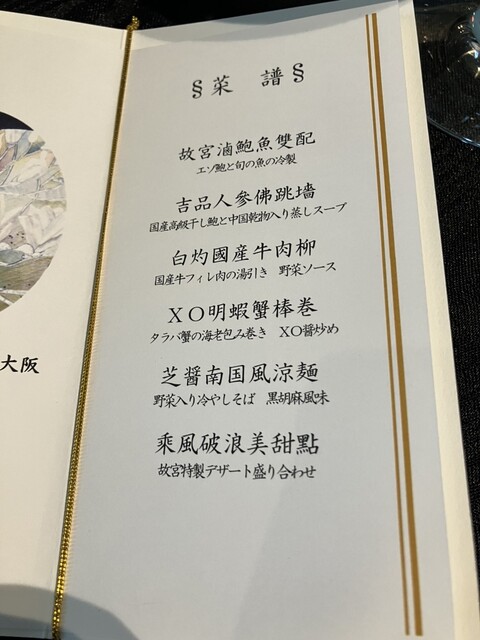 §菜 譜§
故宮滷鮑魚雙配
エゾ鮑と旬の魚の冷製
吉品人參佛跳墻
国産高級干し鮑と中国乾物入り蒸しスープ
白灼國産牛肉柳
国産牛フィレ肉の湯引き 野菜ソース
XO明蝦蟹棒巻
タラバ蟹の海老包み巻き XO醤炒め
芝醤南国風涼麺
野菜入り冷やしそば 黒胡麻風味
乘風破浪美甜點
故宮特製デザート盛り合わせ
大阪